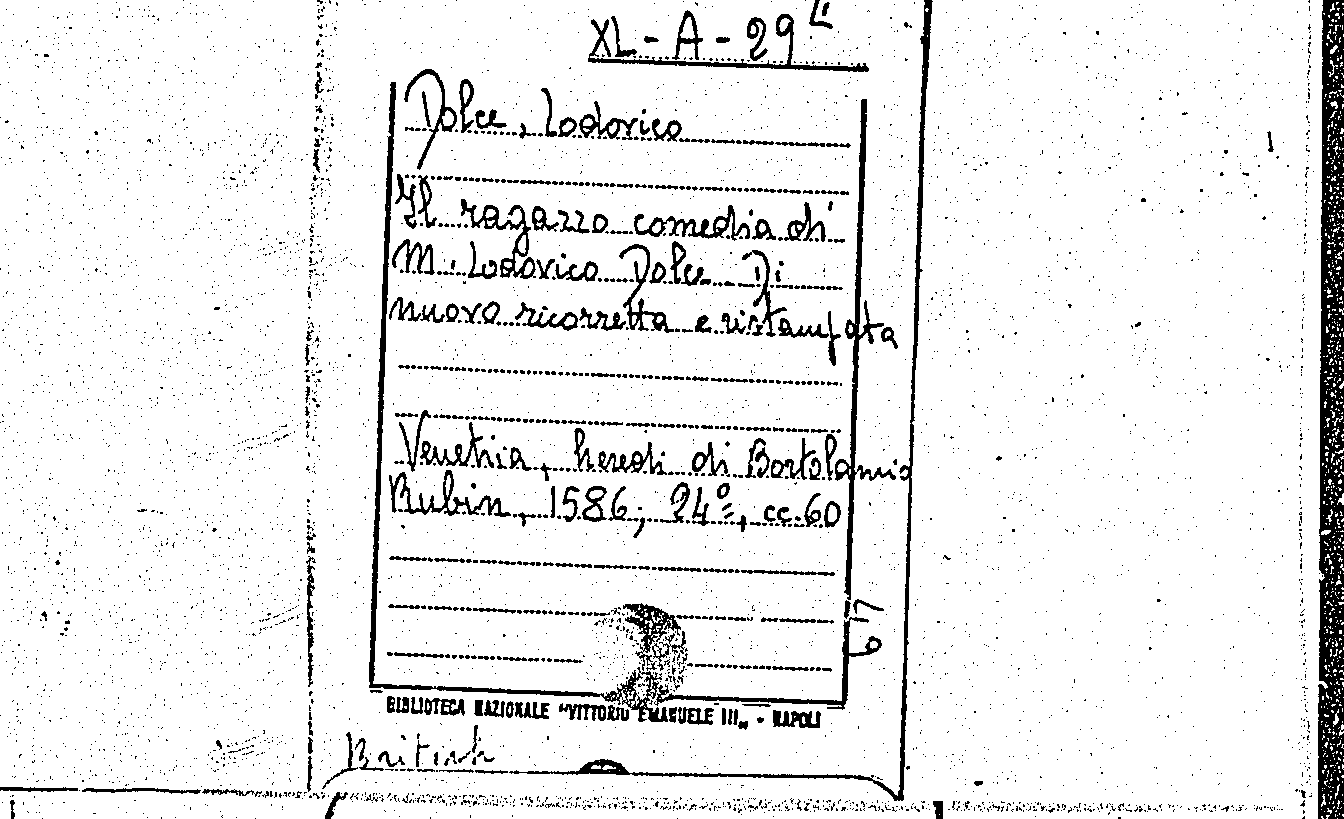 XL-A-29
Dolce, Lodovico
Il ragazzo comedia di
M. Lodovico Dolce. Di
nuovo ricorretta e ristampata
Venetia, heredi di Bortolamio
Rubin, 1586; 24º, cc.60
67
BIBLIOTECA NAZIONALE "VITTORIO EMANUELE III„ - NAPOLI
British